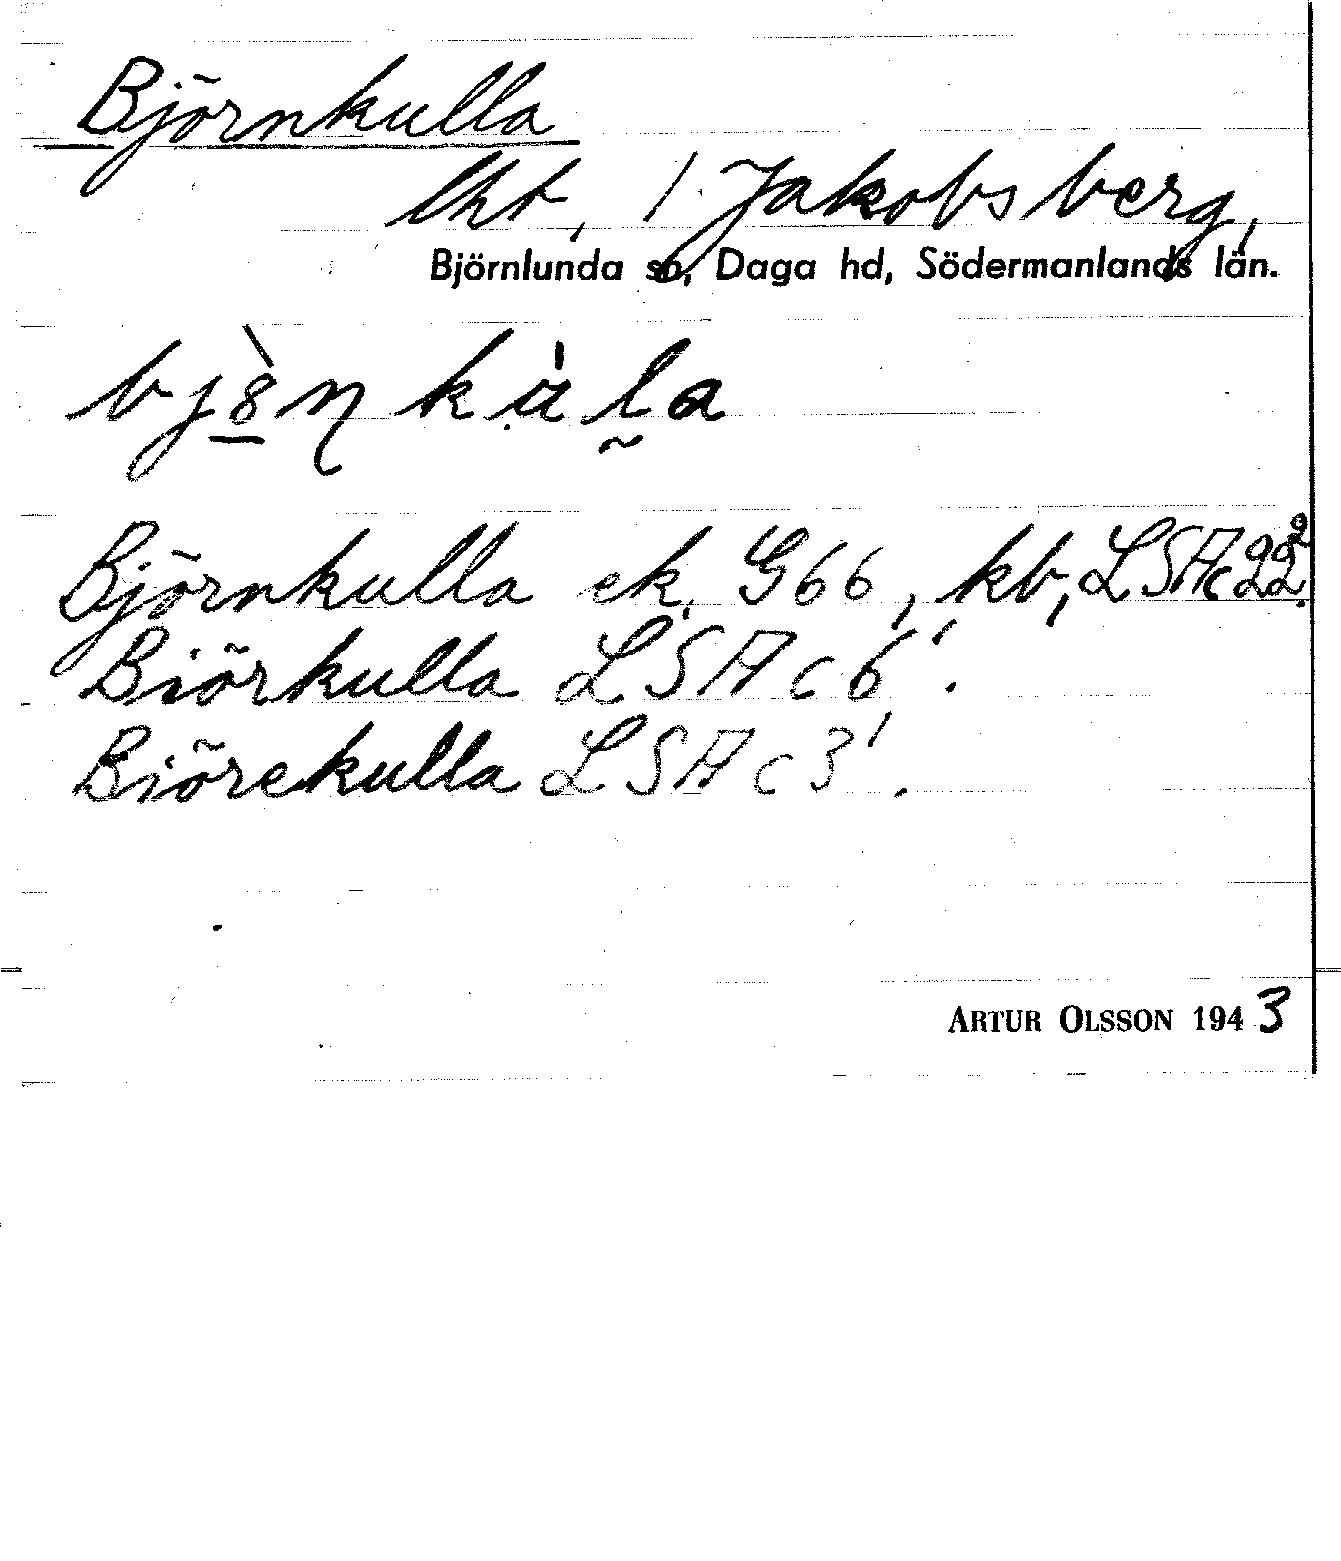 Björnkulla
lht, / Jakobsberg,
Björnlunda sn, Daga hd, Södermanlands län.
Björnkulla ek. G66, kb, LSAc22².
Biörkulla LSAc6¹.
Biörekulla LSAc3¹.
ARTUR OLSSON 1943